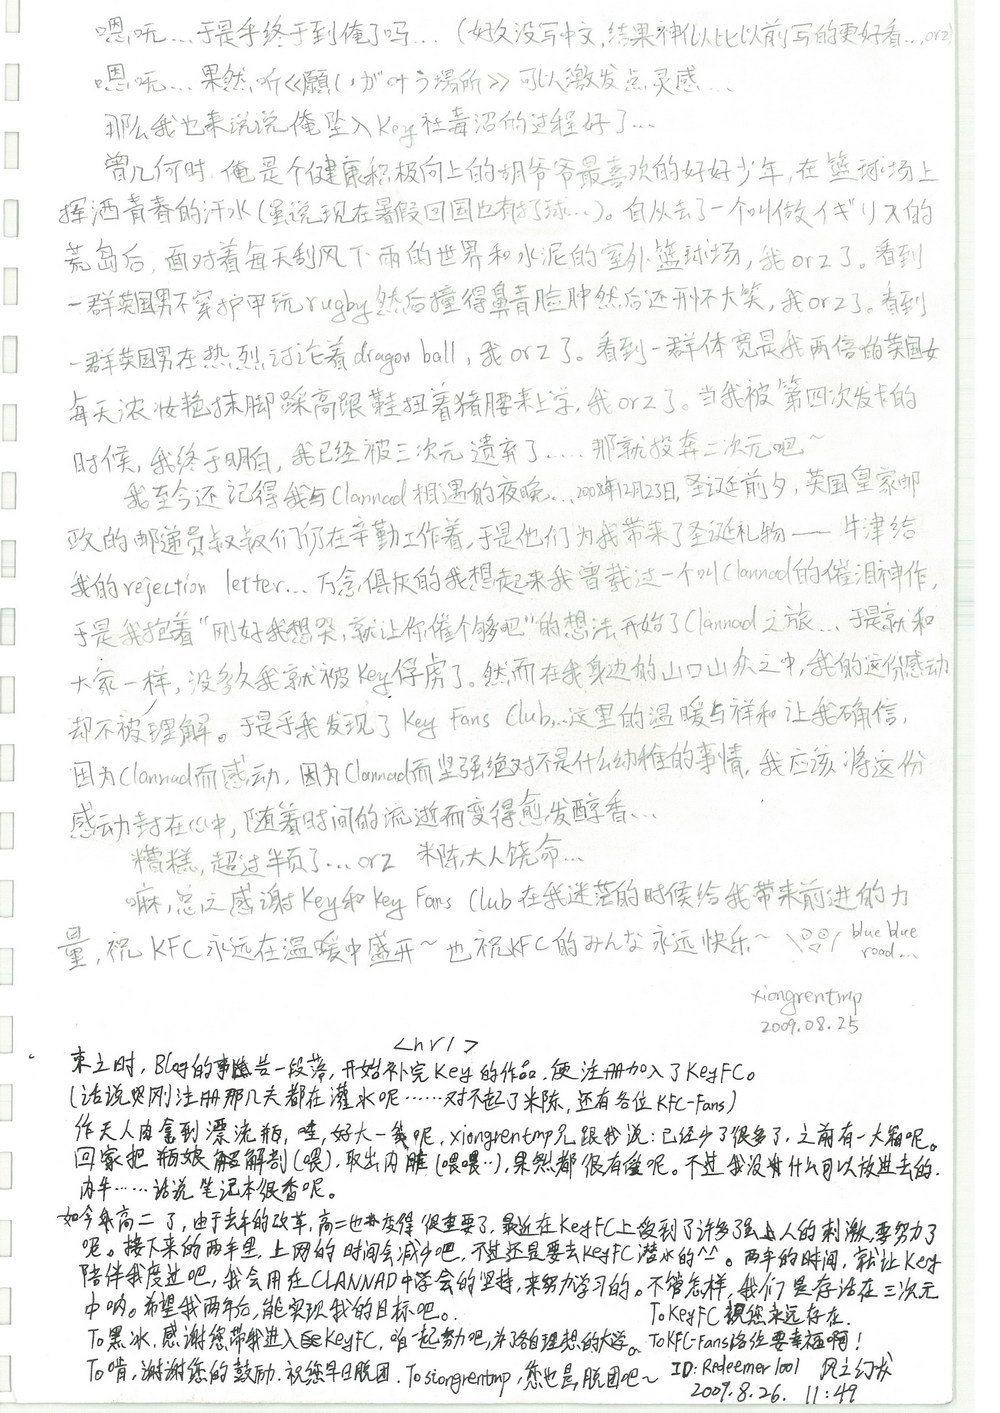 嗯呒…于是乎终于到俺了吗…（好久没写中文,结果神似比以前写的更好看…,orz）
嗯呒…果然,听《願いが叶う場所》可以激发点灵感…
那么我也来说说俺坠入Key社毒沼的过程好了…
曾几何时,俺是个健康积极向上的胡爷爷最喜欢的好好少年,在篮球场上
挥洒青春的汗水(虽说现在暑假回国也有打球…)。自从去了一个叫做イギリス的
荒岛后,面对着每天刮风下雨的世界和水泥的室外篮球场,我orz了。看到
一群英国男不穿护甲玩rugby然后撞得鼻青脸肿然后还开怀大笑,我orz了。看到
一群英国男在热烈讨论着dragon ball,我orz了。看到一群体宽是我两倍的英国女
每天浓妆艳抹脚踩高跟鞋扭着猪腰来上学,我orz了。当我被第四次发卡的
时候,我终于明白,我已经被三次元遗弃了……那就投奔二次元吧~
我至今还记得我与Clannad相遇的夜晚…2008年12月23日,圣诞前夕,英国皇家邮
政的邮递员叔叔们仍在辛勤工作着,于是他们为我带来了圣诞礼物——牛津给
我的rejection letter…万念俱灰的我想起来我曾载过一个叫Clannad的催泪神作,
于是我抱着“刚好我想哭,就让你催个够吧”的想法开始了Clannad之旅…于是就和
大家一样,没多久我就被Key俘虏了。然而在我身边的山口山众之中,我的这份感动
却不被理解。于是乎我发现了Key Fans Club…这里的温暖与祥和让我确信,
因为Clannad而感动,因为Clannad而坚强绝对不是什么幼稚的事情,我应该将这份
感动封在心中,随着时间的流逝而变得愈发醇香…
糟糕,超过半页了…orz 米陈大人饶命…
嘛,总之感谢Key和Key Fans Club在我迷茫的时候给我带来前进的力
量,祝KFC永远在温暖中盛开~也祝KFC的みんな永远快乐~ blue blue
road…
xiongrentmp
2009.08.25
<hr/>
来之时,Blog的事险告一段落,开始补完Key的作品,便注册加入了KeyFC。
(话说刚刚注册那几天都在灌水呢……对不起了米陈,还有各位KFC-Fans)
昨天入肉拿到漂流瓶,哇,好大一箱呢,xiongrentmp兄跟我说:已经少了很多了,之前有一大箱呢。
回家把瓶娘解剖(喂),取出内脏(喂喂…),果然都很有爱呢。不过我没有什么可以放进去的.
内牛……话说笔记本很香呢。
如今升高二了,由于去年的改革,高二也变得很重要了,最近在KeyFC上受到了许多强人的刺激,要努力了
呢。接下来的两年里,上网的时间会减少吧,不过还是要去KeyFC潜水的^^。两年的时间,就让Key
陪伴我度过吧,我会用在CLANNAD中学会的坚持,来努力学习的。不管怎样,我们是存活在三次元
中呐。希望我两年后,能实现我的目标吧。 To KeyFC 祝您永远存在.
To黑冰,感谢您带我进入KeyFC,咱一起努力吧,为了各自理想的大学。 To KFC-Fans各位要幸福啊!
To 啃,谢谢您的鼓励.祝您早日脱团. To xiongrentmp,您也是,脱团吧~ ID: Redeemer1001 风之幻伐
2009.8.26. 11:49